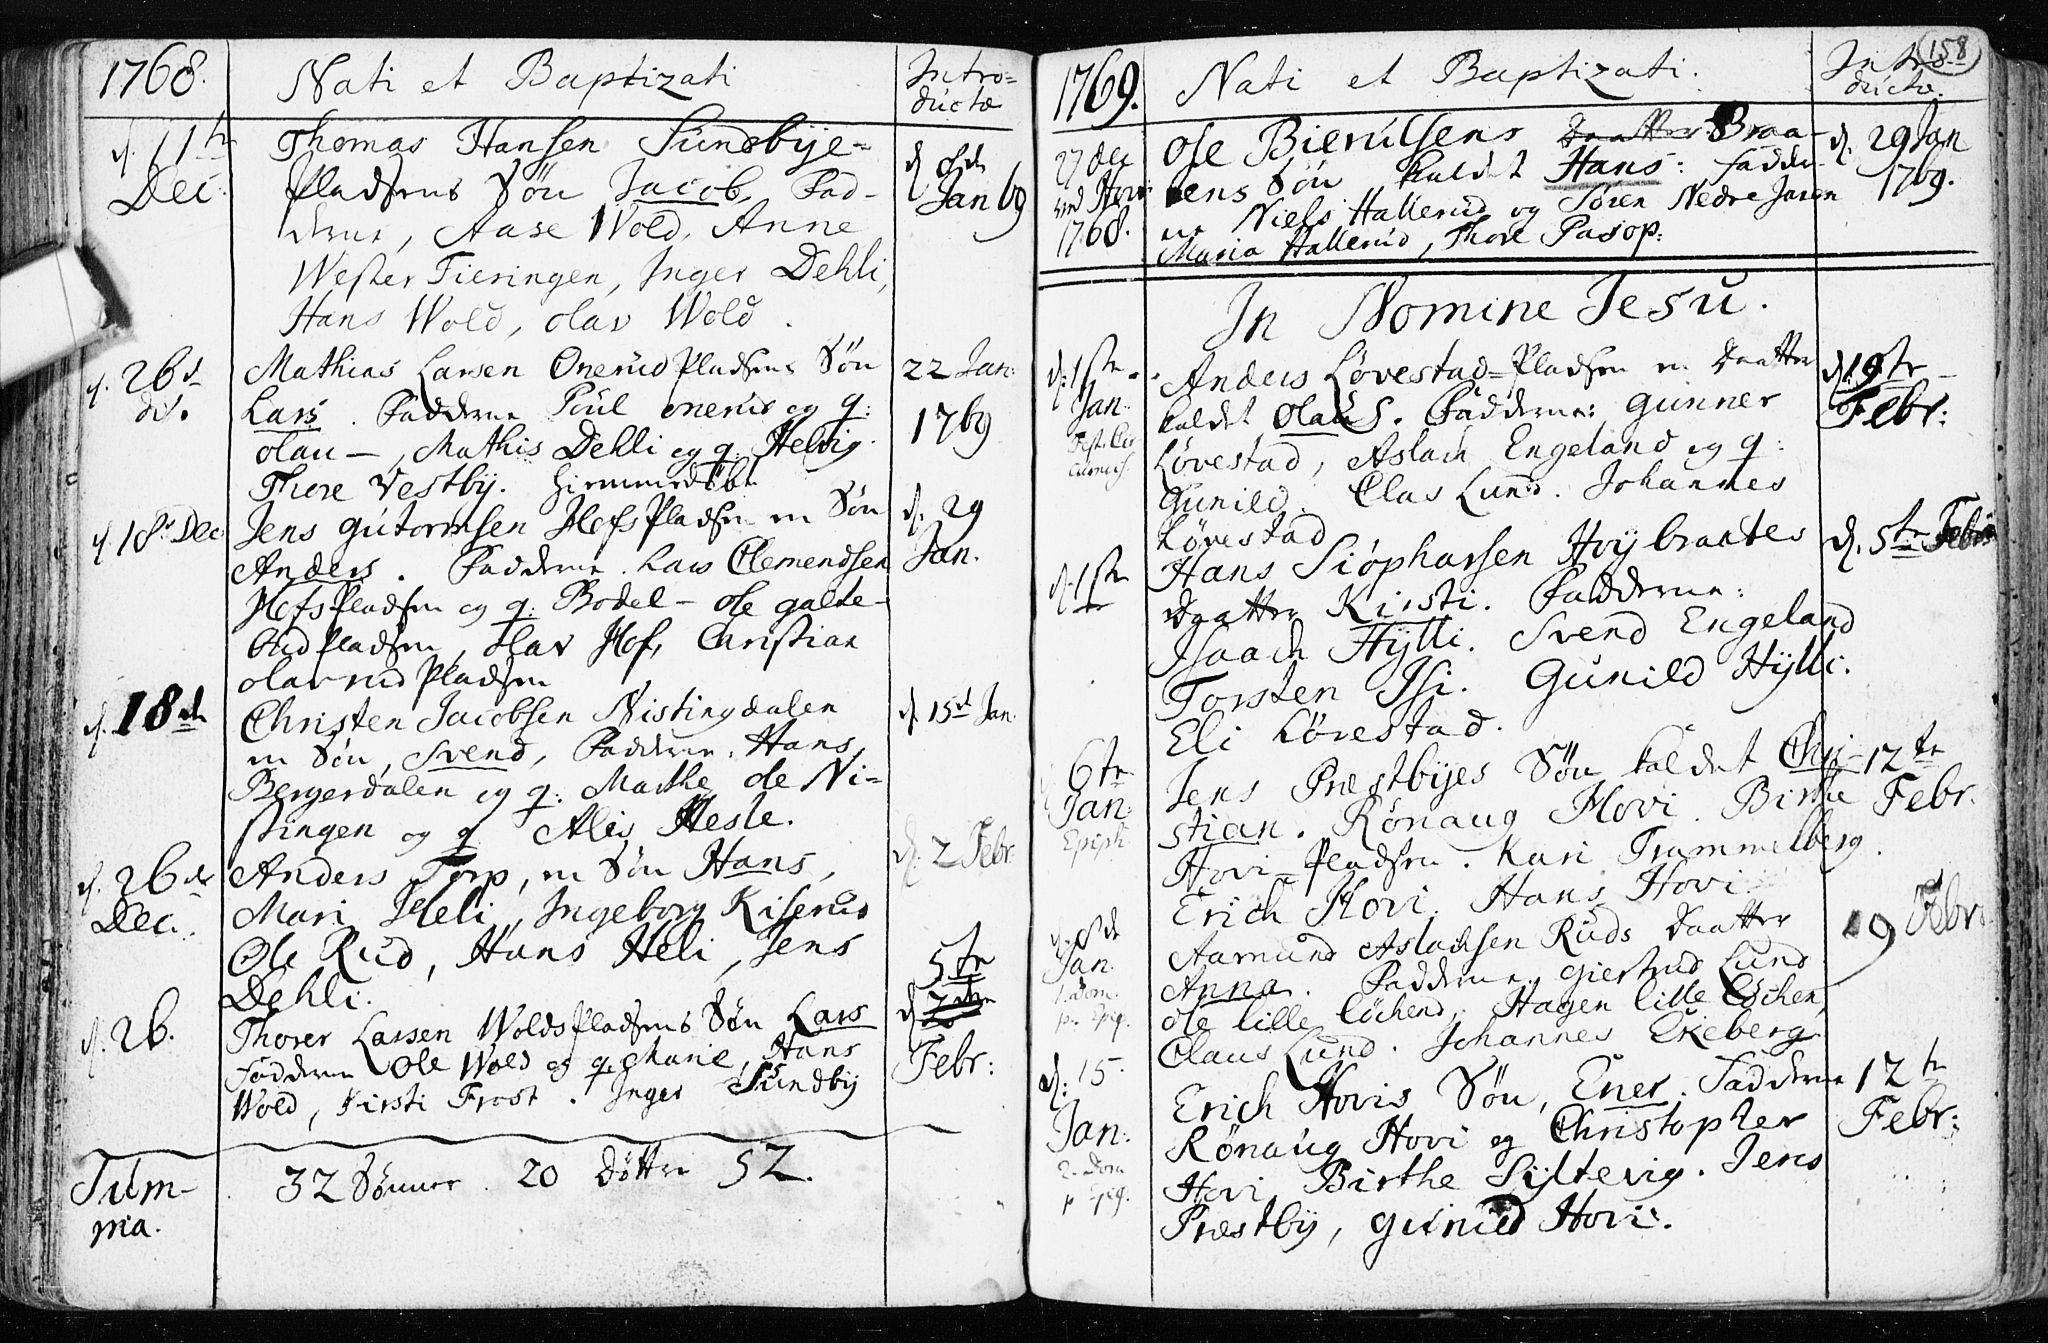 1768.
Nati et Baptizati
Intro=
ductæ
d. 11te
Dec.
Thomas Hansen Sundbÿe=
Pladsens Søn Jacob. Fad-
derne, Aase Wold, Anne
Wester Fieringen, Inger Dehli,
Hans Wold, Olav Wold.
d. 8de
Jan 69
d. 26de
do.
Mathias Larsen Onerud Pladsens Søn
Lars. Fadderne Poul Onerud og q:
Olau—, Mathis Dehli og q: Helvig.
Thore Vestbÿ. Hiemmedøbt
22 Jan:
1769
d. 18de Dec
Jens Gutormsen Hofs Pladsen en Søn
Anders. Fadderne. Lars Clemendsen
Hofs Pladsen og q: Bodel — Ole Galte-
bud Pladsen, Olav Hof, Christian
Olavrud Pladsen
d. 29
Jan.
d. 18de
Christen Jacobsen Nistingdalen
en Søn, Svend, Fadderne: Hans
Bergerdalen og q: Marthe, Ole Ni=
stingen og q Alis Hesle.
d. 15de Jan.
d. 26de
Dec.
Anders Torp, en Søn Hans,
Mari Heli, Ingeborg Kiserud
Ole Rud, Hans Heli, Jens
Dehli.
d. 2 Febr:
d. 26.
Thorer Larsen Wolds Pladsens Søn Lars
Fadderne Ole Wold og q. Marie, Hans
Wold, Kirsti Frost. Inger Sundbÿ
5te
d.
Febr:
Sum-
ma.
32 Sønner. 20 Døttre 52.
1769.
Nati et Baptizati.
Intro
ductæ.
158
27 Dec
ved Hovi
1768.
Ole Bierulsens Daatter Braa-
tens Søn kaldet Hans: Fadder-
ne Niels Hallerud og Søren Nedre Jaren
Maria Hallerud, Thore Pasop:
d. 29 Jan
1769.
In Nomine Jesu.
d. 1ste
Jan.
Fest. Cir
cumcis.
Anders Løvestad=Pladsen en Daatter
kaldet Olaug. Fadderne: Gunner
Løvestad, Aslach Engeland og q:
Gunild. Clas Lund. Johannes
Løvestad
d. 19te
Febr:
d. 1ste
Hans Siøpharsen Hvÿbraates
Daatter Kirsti. Fadderne:
Isaach Hÿlli. Svend Engeland
Torsten Isi. Gunild Hÿlli.
Eli Løvestad.
d. 5te Febr:
6te
Jan:
Epiph.
Jens Præstbÿes Søn kaldet Chri-
stian. Rønaug Hovi. Birthe
Hovi=Pladsen. Kari Trammelberg.
Erich Hovi. Hans Hovi.
12te
Febr.
d. 8de
Jan.
1. Dom.
p. Epip.
Aamund Aslachsen Ruds Daatter
Anna. Fadderne, Giertrud Lund
Ole lille Løchend, Hagen lille Løchen,
Claus Lund. Johannes Ekeberg.
19 Febr:
d: 15.
Jan:
2. Dom
p Epip.
Erich Hovis Søn, Ener. Fadderne
Rønaug Hovi og Christopher
Hovi, Birthe Sÿltevig. Jens
Præstbÿ, Gunild Hovi.
12te
Febr: